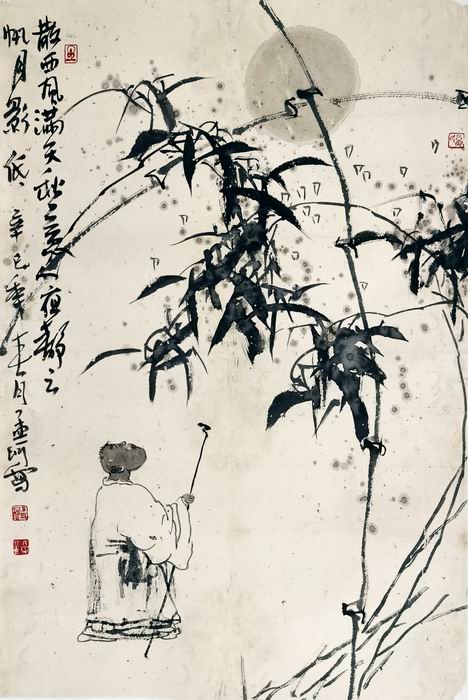 散西风满天秋意夜静云
帆月影低 辛巳年春月孟写